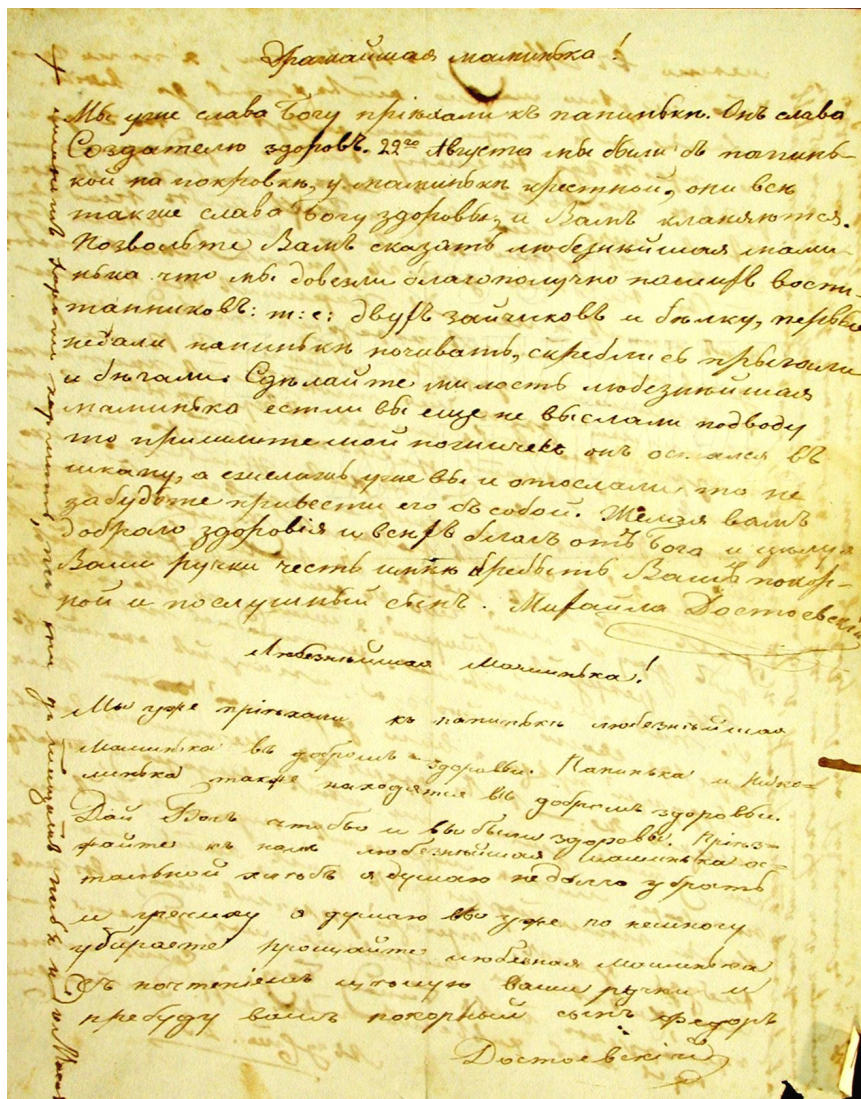 Дражайшая маминька!
Мы уже слава Богу пріѣхали къ папинькѣ. Онъ слава
Создателю здоровъ. 22го Августа мы были съ папинь-
кой на покровкѣ, у маминьки крестной, они всѣ
также слава Богу здоровы, и Вамъ кланяются.
Позвольте Вамъ сказать любезнѣйшая мами-
нька что мы довезли благополучно нашихъ воспи-
танниковъ: т: е: двухъ зайчиковъ и бѣлку, первые
недали папинькѣ почивать, скреблись прыгали
и бѣгали. Сдѣлайте милость любезнѣйшая
маминька естли вы еще не выслали подводу
то пришлите мой ножичекъ онъ остался въ
шкапу, а ежели уже вы и отослали, то не
забудьте привести его съ собой. Желая вамъ
добраго здоровія и всѣхъ благъ отъ Бога и цѣлуя
Ваши ручки честь имѣю пребыть Вашъ покор-
ной и послушный сынъ. Михайла Достоевскій
Любезнѣйшая Маминька!
Мы уже пріѣхали къ папинькѣ любезнѣйшая
Маминька въ добромъ здоровьи. Папинька и Нико-
линька также находятся въ добромъ здоровьи.
Дай Богъ чтобы и вы были здоровы. Пріѣз-
жайте къ намъ любезнѣйшая Маминька ос-
тальной хлѣбъ я думаю недолго убрать
и гречиху я думаю вы уже по немногу
убираете прощайте любезная маминька
съ почтеніемъ цѣлую ваши ручки и
пребуду вашъ покорный сынъ федоръ
Достоевскій